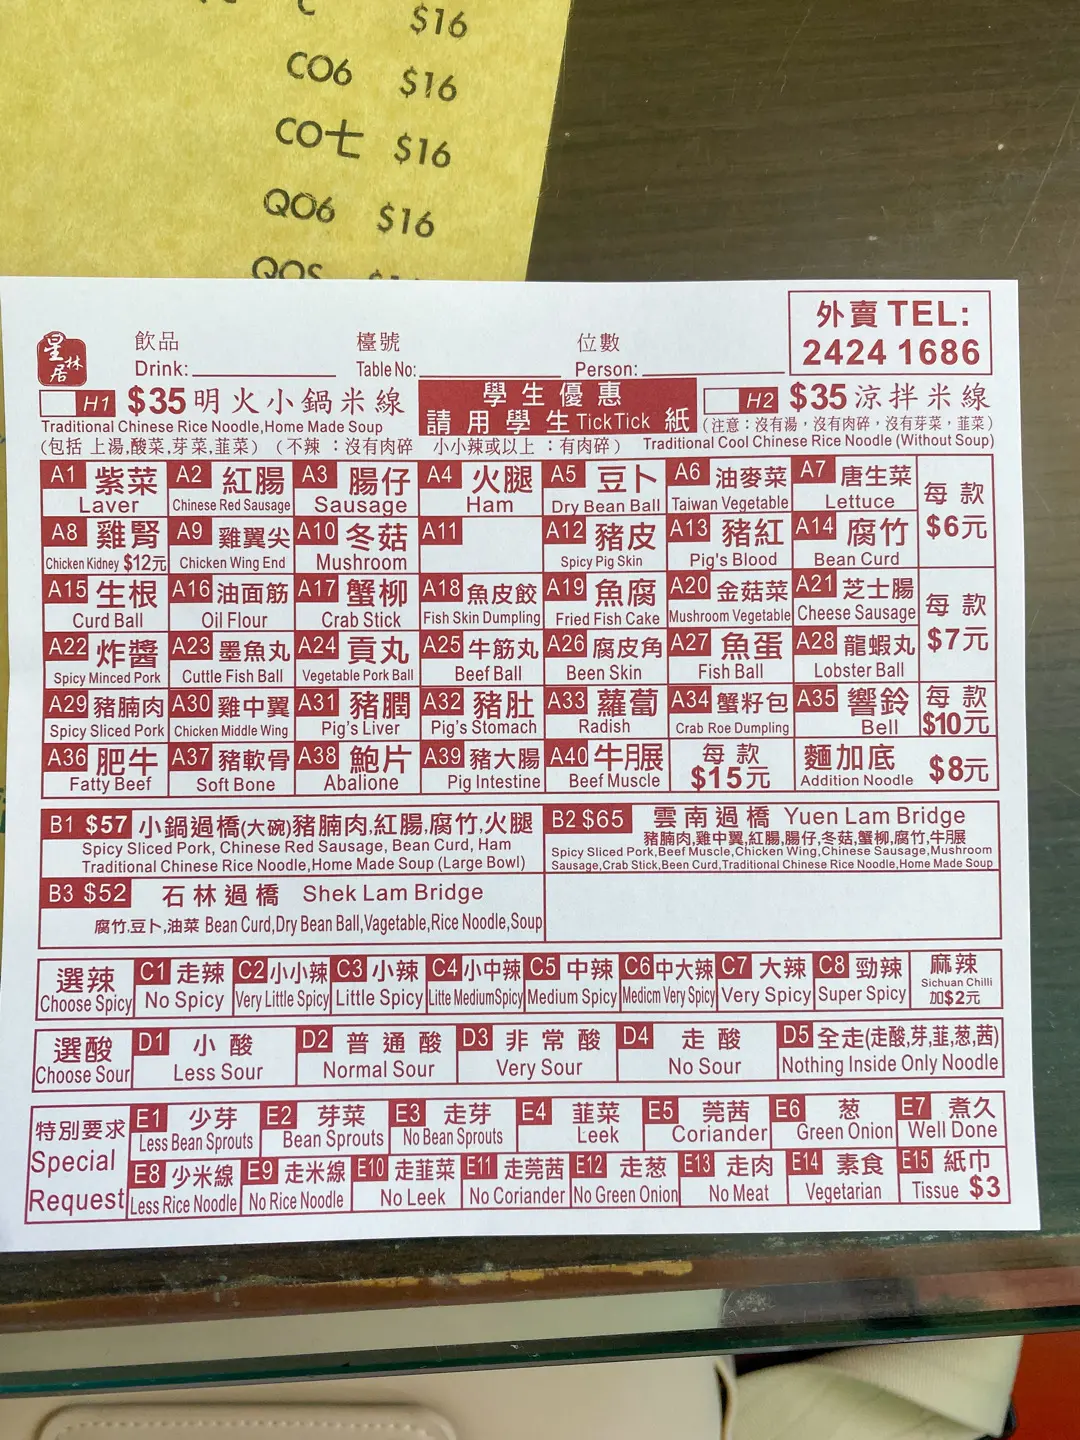 C $16
CO6 $16
CO七 $16
QO6 $16
QOS
星林居
飲品 檯號 位數
Drink: Table No: Person:
外賣 TEL:
2424 1686
H1 $35 明火小鍋米線
Traditional Chinese Rice Noodle,Home Made Soup
(包括 上湯,酸菜,芽菜,韮菜) (不辣 : 沒有肉碎 小小辣或以上 : 有肉碎)
學生優惠
請用學生TickTick 紙
H2 $35 涼拌米線
(注意:沒有湯,沒有肉碎,沒有芽菜,韮菜)
Traditional Cool Chinese Rice Noodle (Without Soup)
A1 紫菜 A2 紅腸 A3 腸仔 A4 火腿 A5 豆卜 A6 油麥菜 A7 唐生菜
Laver Chinese Red Sausage Sausage Ham Dry Bean Ball Taiwan Vegetable Lettuce
A8 雞腎 A9 雞翼尖 A10 冬菇 A11 A12 豬皮 A13 豬紅 A14 腐竹
Chicken Kidney $12元 Chicken Wing End Mushroom Spicy Pig Skin Pig's Blood Bean Curd
每款
$6元
A15 生根 A16 油面筋 A17 蟹柳 A18 魚皮餃 A19 魚腐 A20 金菇菜 A21 芝士腸
Curd Ball Oil Flour Crab Stick Fish Skin Dumpling Fried Fish Cake Mushroom Vegetable Cheese Sausage
A22 炸醬 A23 墨魚丸 A24 貢丸 A25 牛筋丸 A26 腐皮角 A27 魚蛋 A28 龍蝦丸
Spicy Minced Pork Cuttle Fish Ball Vegetable Pork Ball Beef Ball Been Skin Fish Ball Lobster Ball
每款
$7元
A29 豬腩肉 A30 雞中翼 A31 豬膶 A32 豬肚 A33 蘿蔔 A34 蟹籽包 A35 響鈴
Spicy Sliced Pork Chicken Middle Wing Pig's Liver Pig's Stomach Radish Crab Roe Dumpling Bell
每款
$10元
A36 肥牛 A37 豬軟骨 A38 鮑片 A39 豬大腸 A40 牛𦟌
Fatty Beef Soft Bone Abalione Pig Intestine Beef Muscle
每款
$15元
麵加底
Addition Noodle $8元
B1 $57 小鍋過橋(大碗)豬腩肉,紅腸,腐竹,火腿
Spicy Sliced Pork, Chinese Red Sausage, Bean Curd, Ham
Traditional Chinese Rice Noodle,Home Made Soup (Large Bowl)
B2 $65 雲南過橋 Yuen Lam Bridge
豬腩肉,雞中翼,紅腸,腸仔,冬菇,蟹柳,腐竹,牛𦟌
Spicy Sliced Pork,Beef Muscle,Chicken Wing,Chinese Sausage,Mushroom
Sausage,Crab Stick,Been Curd,Traditional Chinese Rice Noodle,Home Made Soup
B3 $52 石林過橋 Shek Lam Bridge
腐竹,豆卜,油菜 Bean Curd,Dry Bean Ball,Vagetable,Rice Noodle,Soup
選辣 C1 走辣 C2 小小辣 C3 小辣 C4 小中辣 C5 中辣 C6 中大辣 C7 大辣 C8 勁辣 麻辣
Choose Spicy No Spicy Very Little Spicy Little Spicy Litte MediumSpicy Medium Spicy Medicm Very Spicy Very Spicy Super Spicy Sichuan Chilli
加$2元
選酸 D1 小酸 D2 普通酸 D3 非常酸 D4 走酸 D5 全走(走酸,芽,韮,葱,茜)
Choose Sour Less Sour Normal Sour Very Sour No Sour Nothing Inside Only Noodle
特別要求
Special
Request
E1 少芽 E2 芽菜 E3 走芽 E4 韮菜 E5 莞茜 E6 葱 E7 煮久
Less Bean Sprouts Bean Sprouts No Bean Sprouts Leek Coriander Green Onion Well Done
E8 少米線 E9 走米線 E10 走韮菜 E11 走莞茜 E12 走葱 E13 走肉 E14 素食 E15 紙巾
Less Rice Noodle No Rice Noodle No Leek No Coriander No Green Onion No Meat Vegetarian Tissue $3